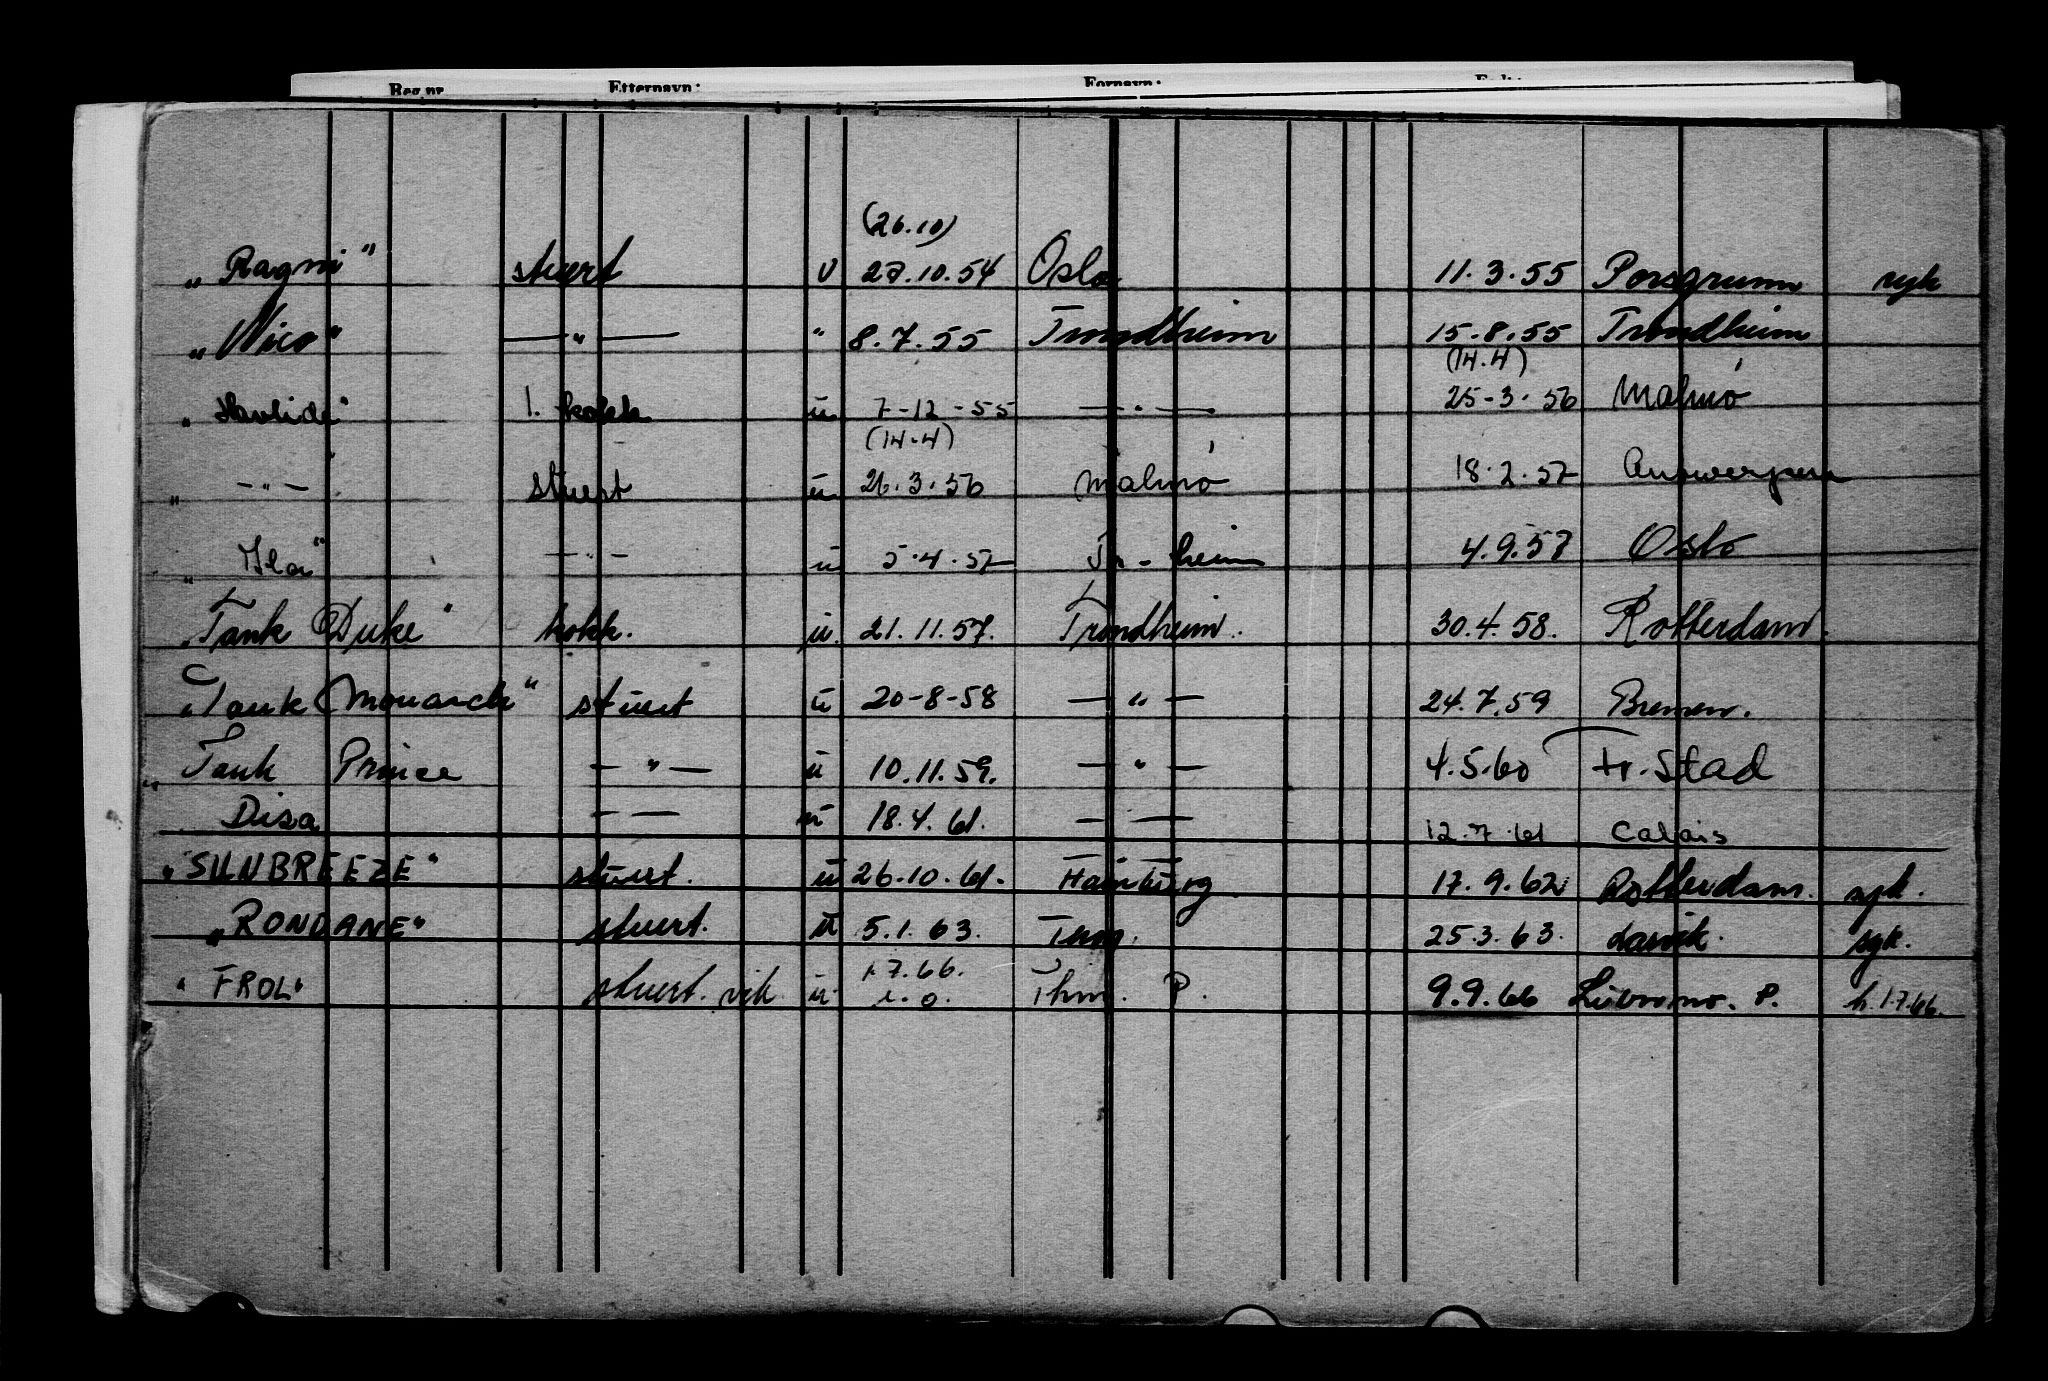 Reg.nr. Etternavn: Fornavn:
(26.10)
„Ragni" stuert u 27.10.54 Oslo 11.3.55 Porsgrunn syk
„Nico" —„— " 8.7.55 Trondheim 15.8.55 Trondheim
(14.4)
„Havlide" 1. kokk u 7-12-55 —"— 25-3-56 Malmö
(14.4)
„ —"— stuert u 26.3.56 Malmö 18.2.57 Antwerpen
„Ila" —"— u 5.4.57 Tr-heim 4.9.57 Oslo
„Tank Duke" kokk. u. 21.11.57. Trondheim. 30.4.58. Rotterdam.
„Tank Monarch" stuert u 20-8-58 —"— 24.7.59 Bremen.
„Tank Prince —"— u 10.11.59. —"— 4.5.60 Fr.stad
Disa — — u 18.4.61. — — 12.7.61 Calais
„SUNBREEZE" stuert. u 26.10.61. Hamburg 17.9.62 Rotterdam. syk.
„RONDANE" stuert. u 5.1.63. Thm. 25.3.63. Larvik. syk.
1.7.66.
"FROL" stuert. vik u Thm. P. 9.9.66 P. h.1.7.66.